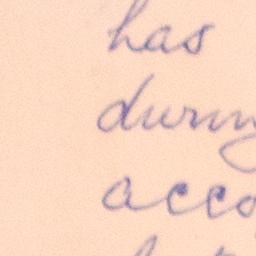 has
during
acco